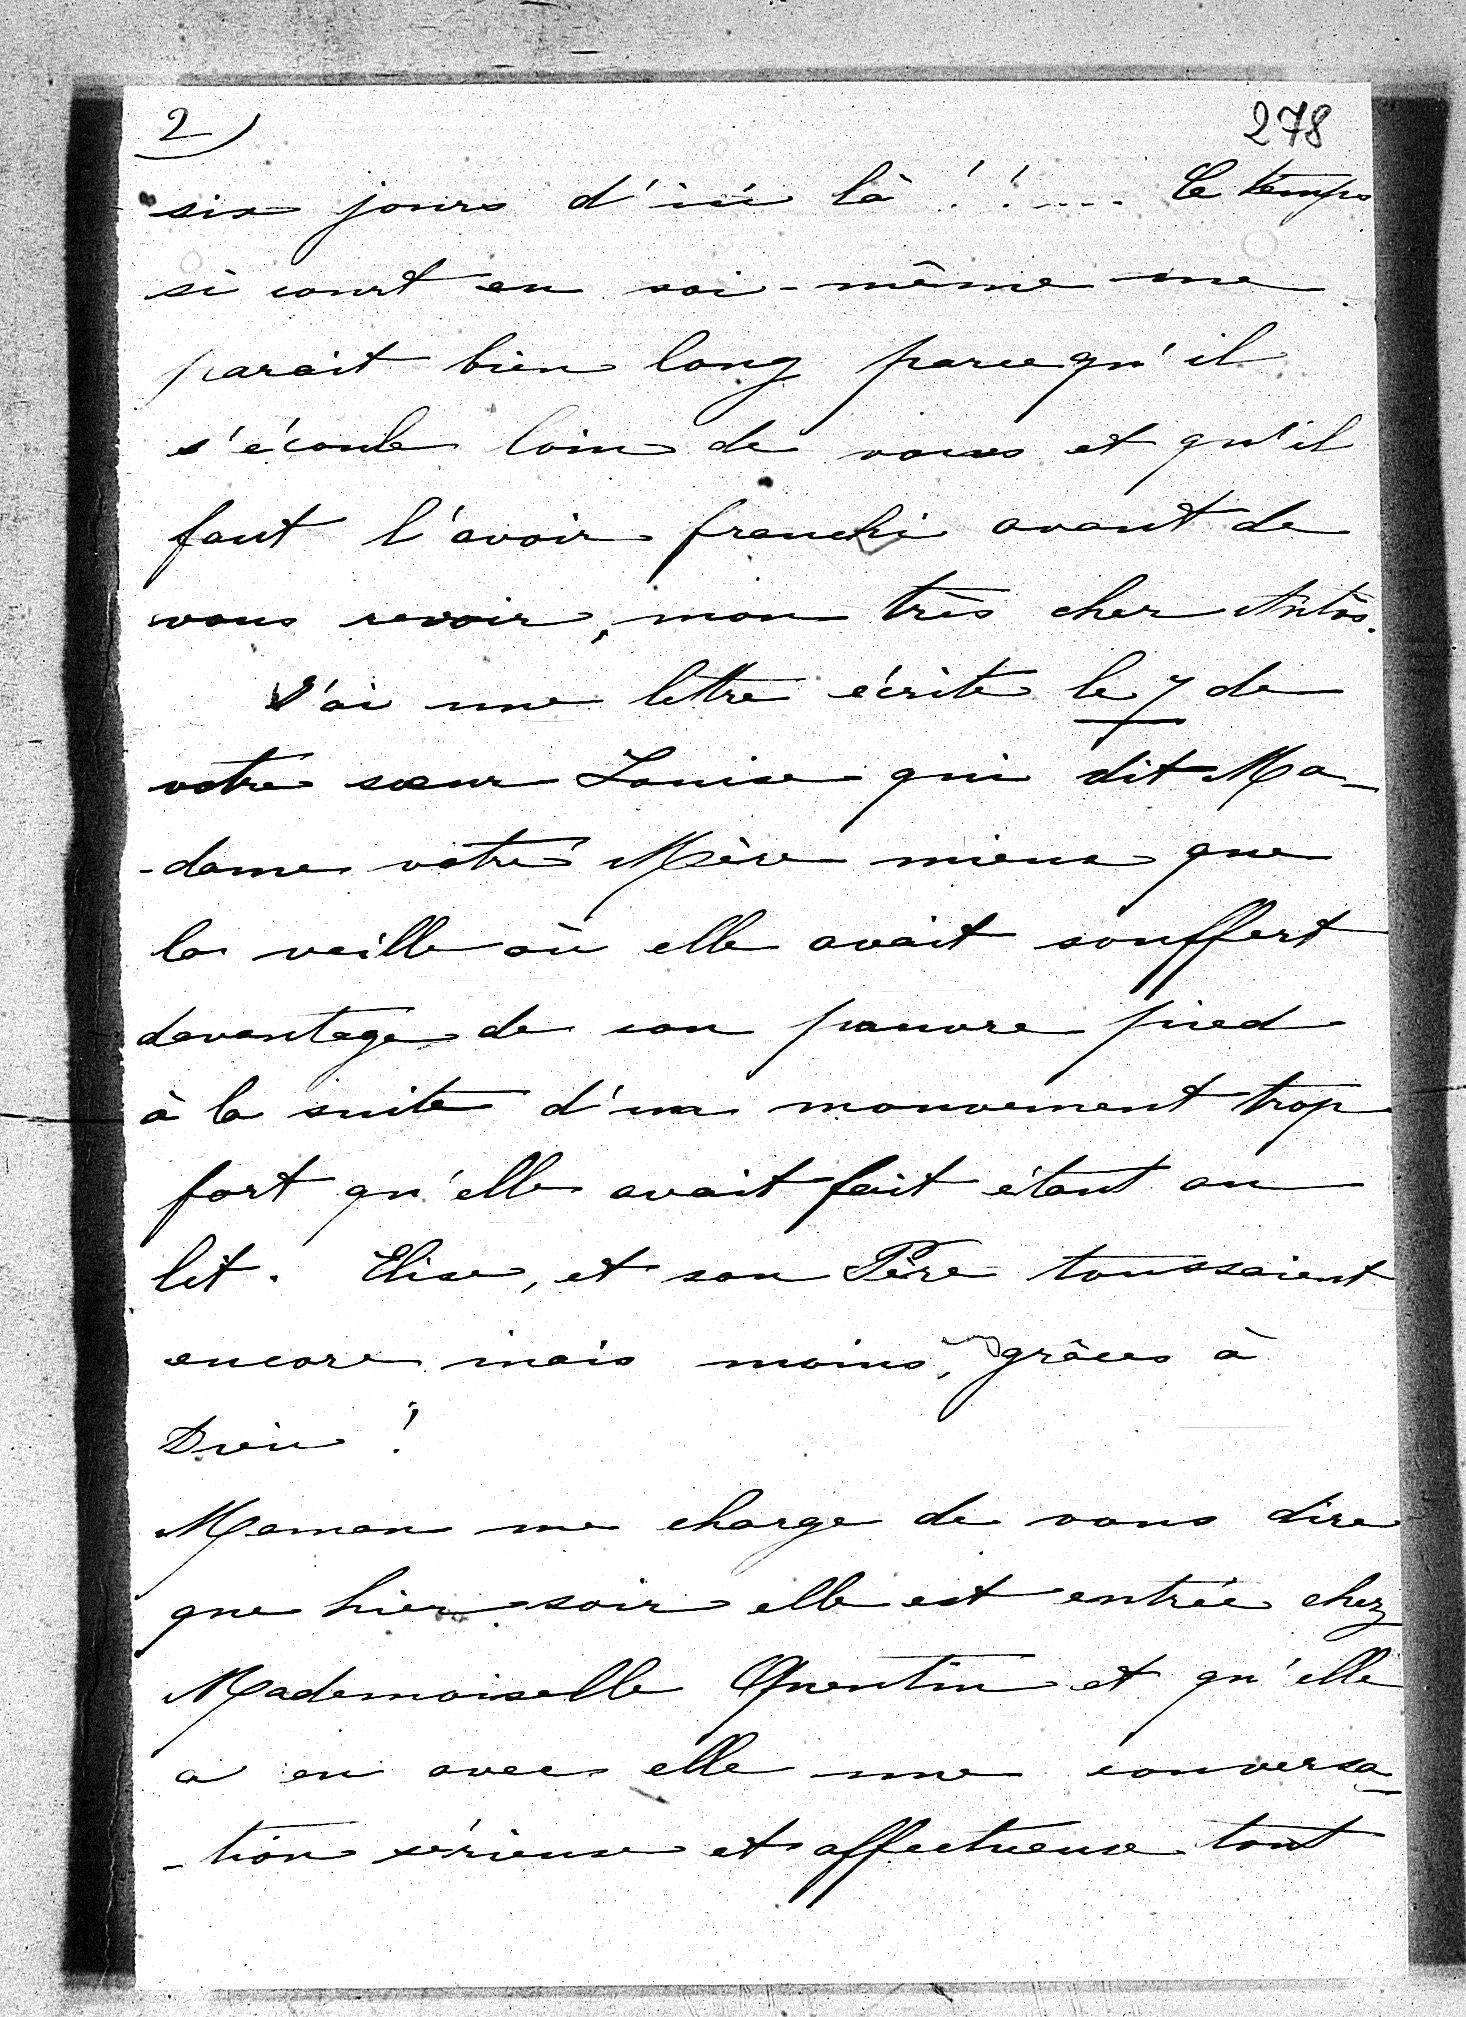 2)
278
six jours d'ici là !!.... Ce temps
si court en soi-même me
parait bien long parcequ'il
s'écoule loin de vous et qu'il
faut l'avoir franchi avant de
vous revoir, mon très cher
J'ai une lettre écrite le 7 de
votre sœur Louise qui dit Ma-
-dame votre Mère mieux que
la veille où elle avait souffert
davantage de son pauvre pied
à la suite d'un mouvement trop
fort qu'elle avait fait étant au
lit. Elise, et son Père toussaient
encore mais moins, grâces à
Dieu !
Maman me charge de vous dire
que hier soir elle est entrée chez
Mademoiselle Quentin et qu'elle
a eu avec elle une conversa-
-tion sérieuse et affectueuse tout